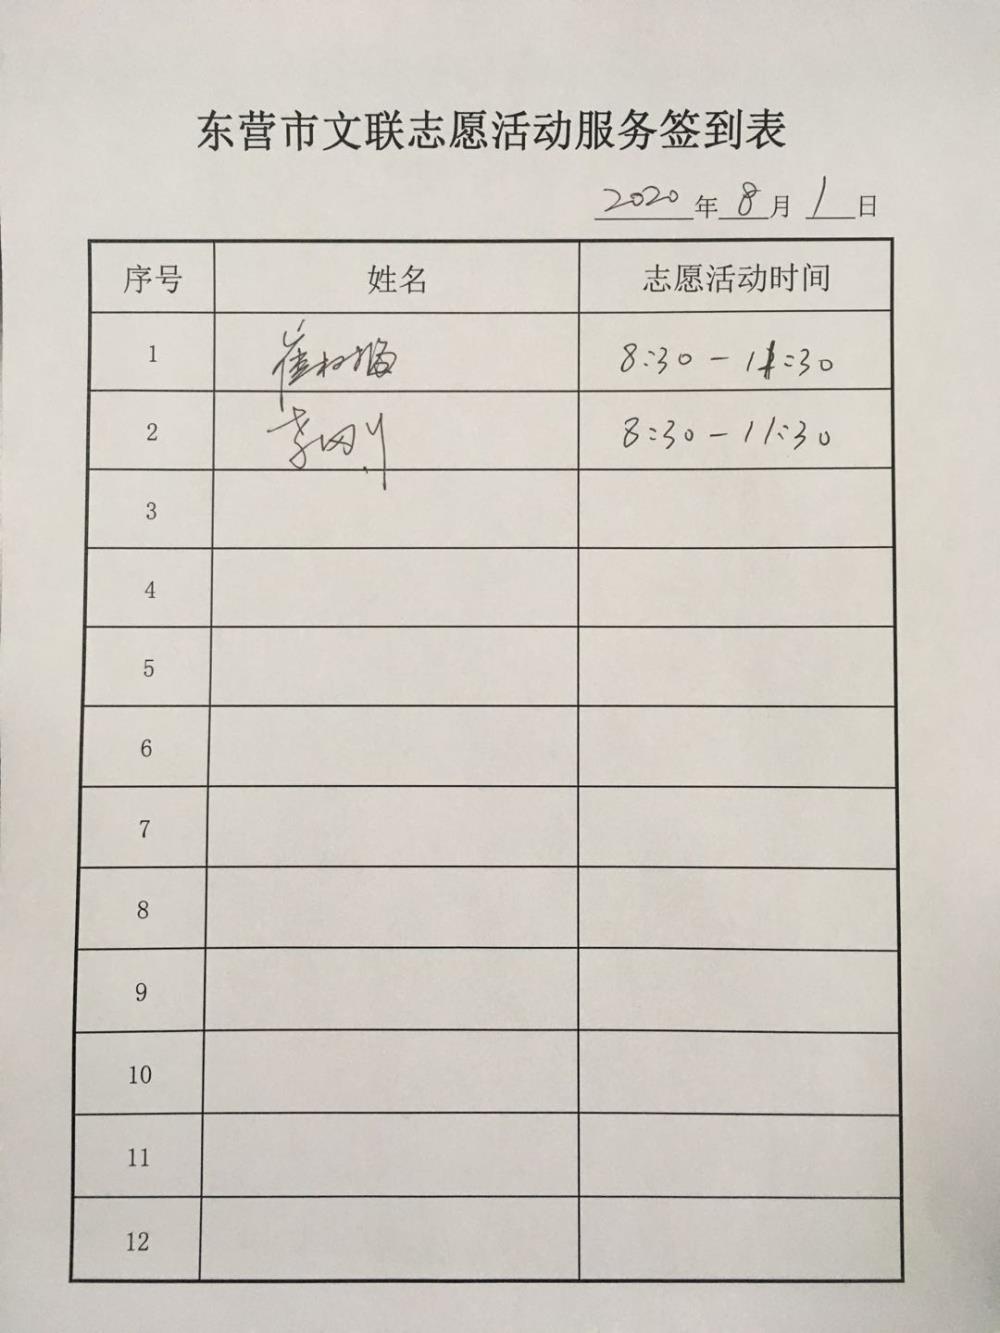 东营市文联志愿活动服务签到表
2020年8月1日
序号 姓名 志愿活动时间
1 崔 8:30-11:30
2 李刚 8:30-11:30
3
4
5
6
7
8
9
10
11
12